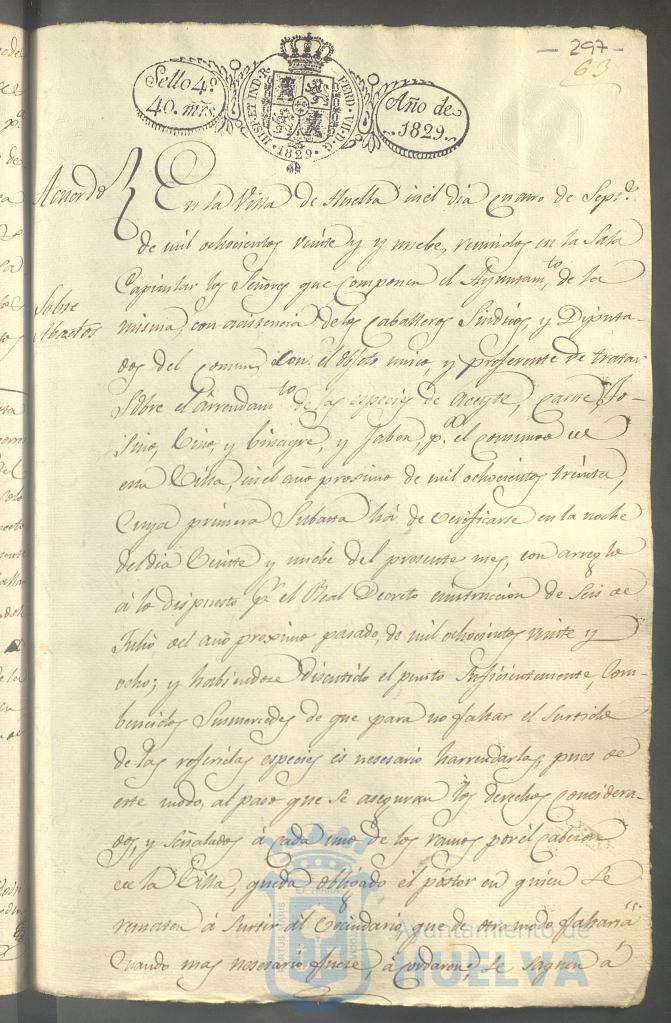 - 297 -
63
Sello 4º
40. mrs.
HISP. ET IND. R.
FERD. VII. D. G.
· 1829 ·
Año de
1829.
Acuerdo
En la Villa de Huelba in el dia cuatro de Septe.
de mil ochocientos veinte y y nuebe, reunidos en la Sala
Capitular los Señores que componen el Ayuntamto. de la
Sobre
Abastos
misma, con asistencia de los Caballeros Sindicos, y Diputa-
dos del comun, con el objeto unico, y preferente de tratar
Sobre el Arrendamto. de las especies de Aceyte, carne, To-
sino, Vino, y Vinagre, y Jabon, pa. el consumo de
esta Villa, in el año proximo de mil ochocientos treinta,
Cuya primera Subasta há de Verificarse en la noche
del dia Veinte y nuebe del presente mes, con arreglo
á lo dispuesto pr. el Real Decreto einstruccion de Seis de
Julio del año proximo pasado, de mil ochocientos veinte y
ocho; y habiendose discutido el punto suficientemente, Com-
bencidos Susmercedes de que para no faltar el Surtido
de las referidas especies es nesesario harrendarlas, pues de
este modo, al paso que se aseguran los derechos considera-
dos, y señalados á cada uno de los ramos por el cabezon
de la Villa, queda obligado el postor en quien Se
rematen á Surtir al Vecindario, que de otro modo faltaria
Cuando mas nesesario fuese, acordaron, se saquen á
Ayuntamiento de
HUELVA